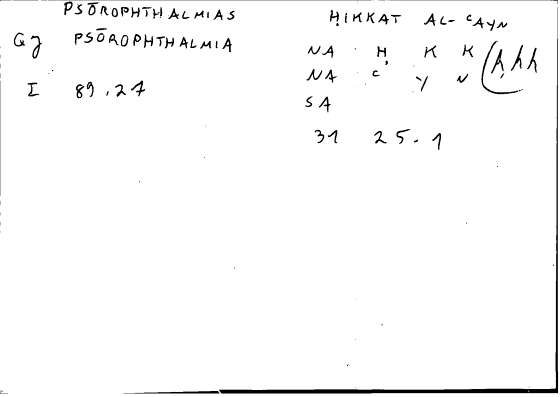 PSŌROPHTHALMIAS
GJ PSŌROPHTHALMIA
I 89.27
ḤIKKAT AL-ʿAYN
NA Ḥ K K
NA ʿ Y N
SA
31 25.1